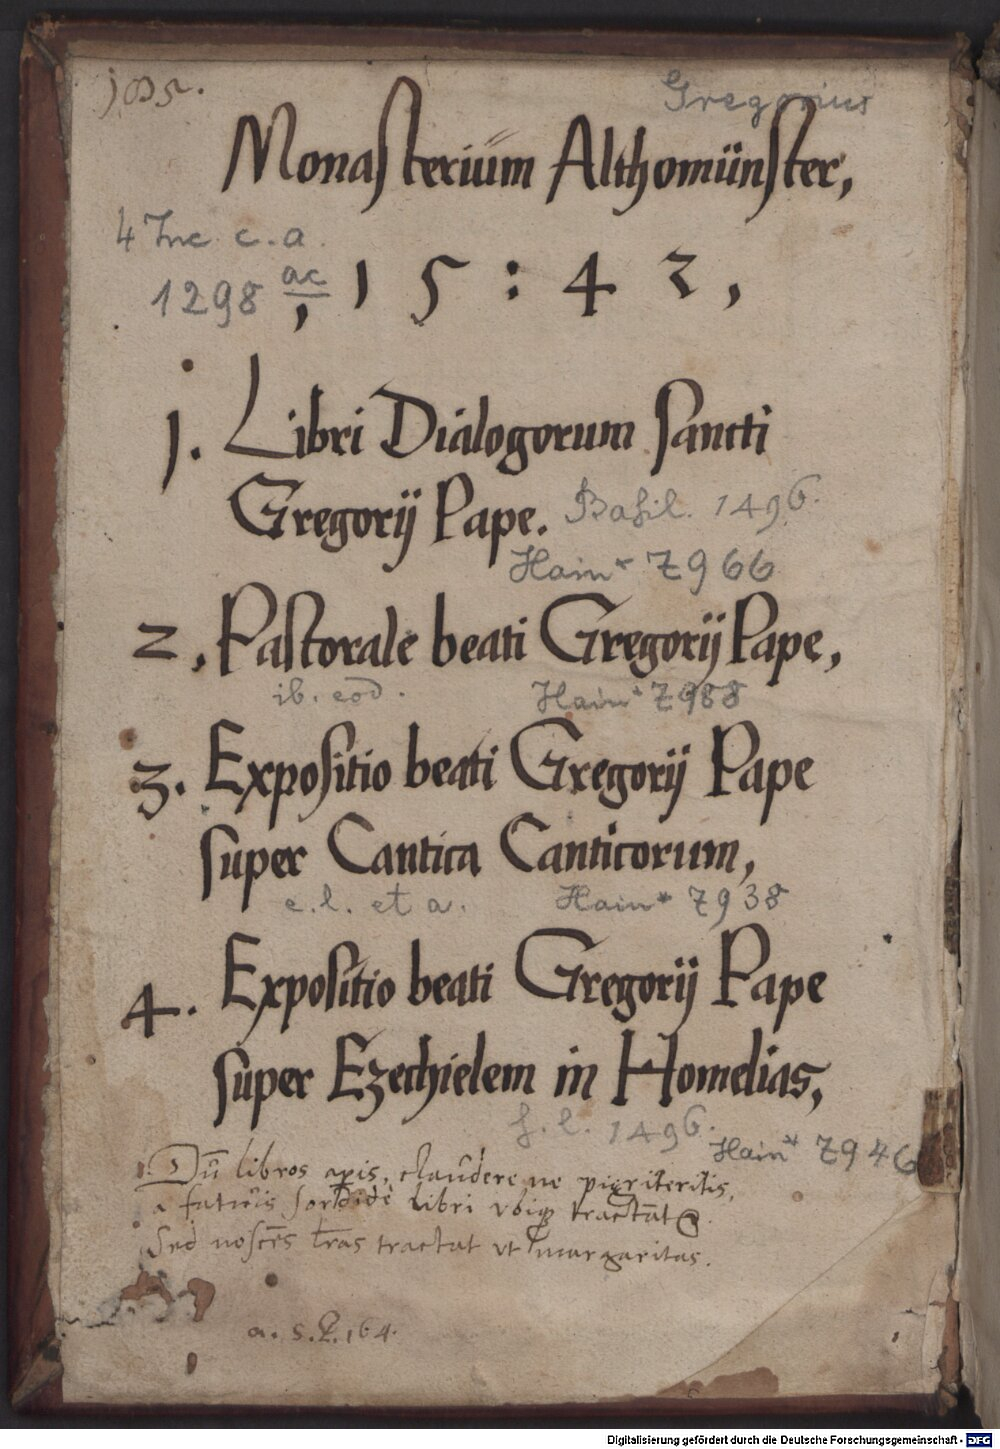 Gregorius
Monasterium Althomünster,
4 Inc. c. a.
1298 ac
, 1 5 : 4 3 ,
1. Libri Dialogorum sancti
Gregorij Pape. Basil. 1496.
Hain* 7966
2, Pastorale beati Gregorij Pape,
ib. eod. Hain* 7988
3. Expositio beati Gregorij Pape
super Cantica Canticorum,
e. l. et a. Hain* 7938
4. Expositio beati Gregorij Pape
super Ezechielem in Homelias,
s. l. 1496. Hain* 7946
Dū libros apis, claudere ne pigriteritis,
a fatuis sordide libri vbiqꝫ tractātꝛ.
Sed noscēs lr̄as tractat vt margaritas.
Digitalisierung gefördert durch die Deutsche Forschungsgemeinschaft - DFG